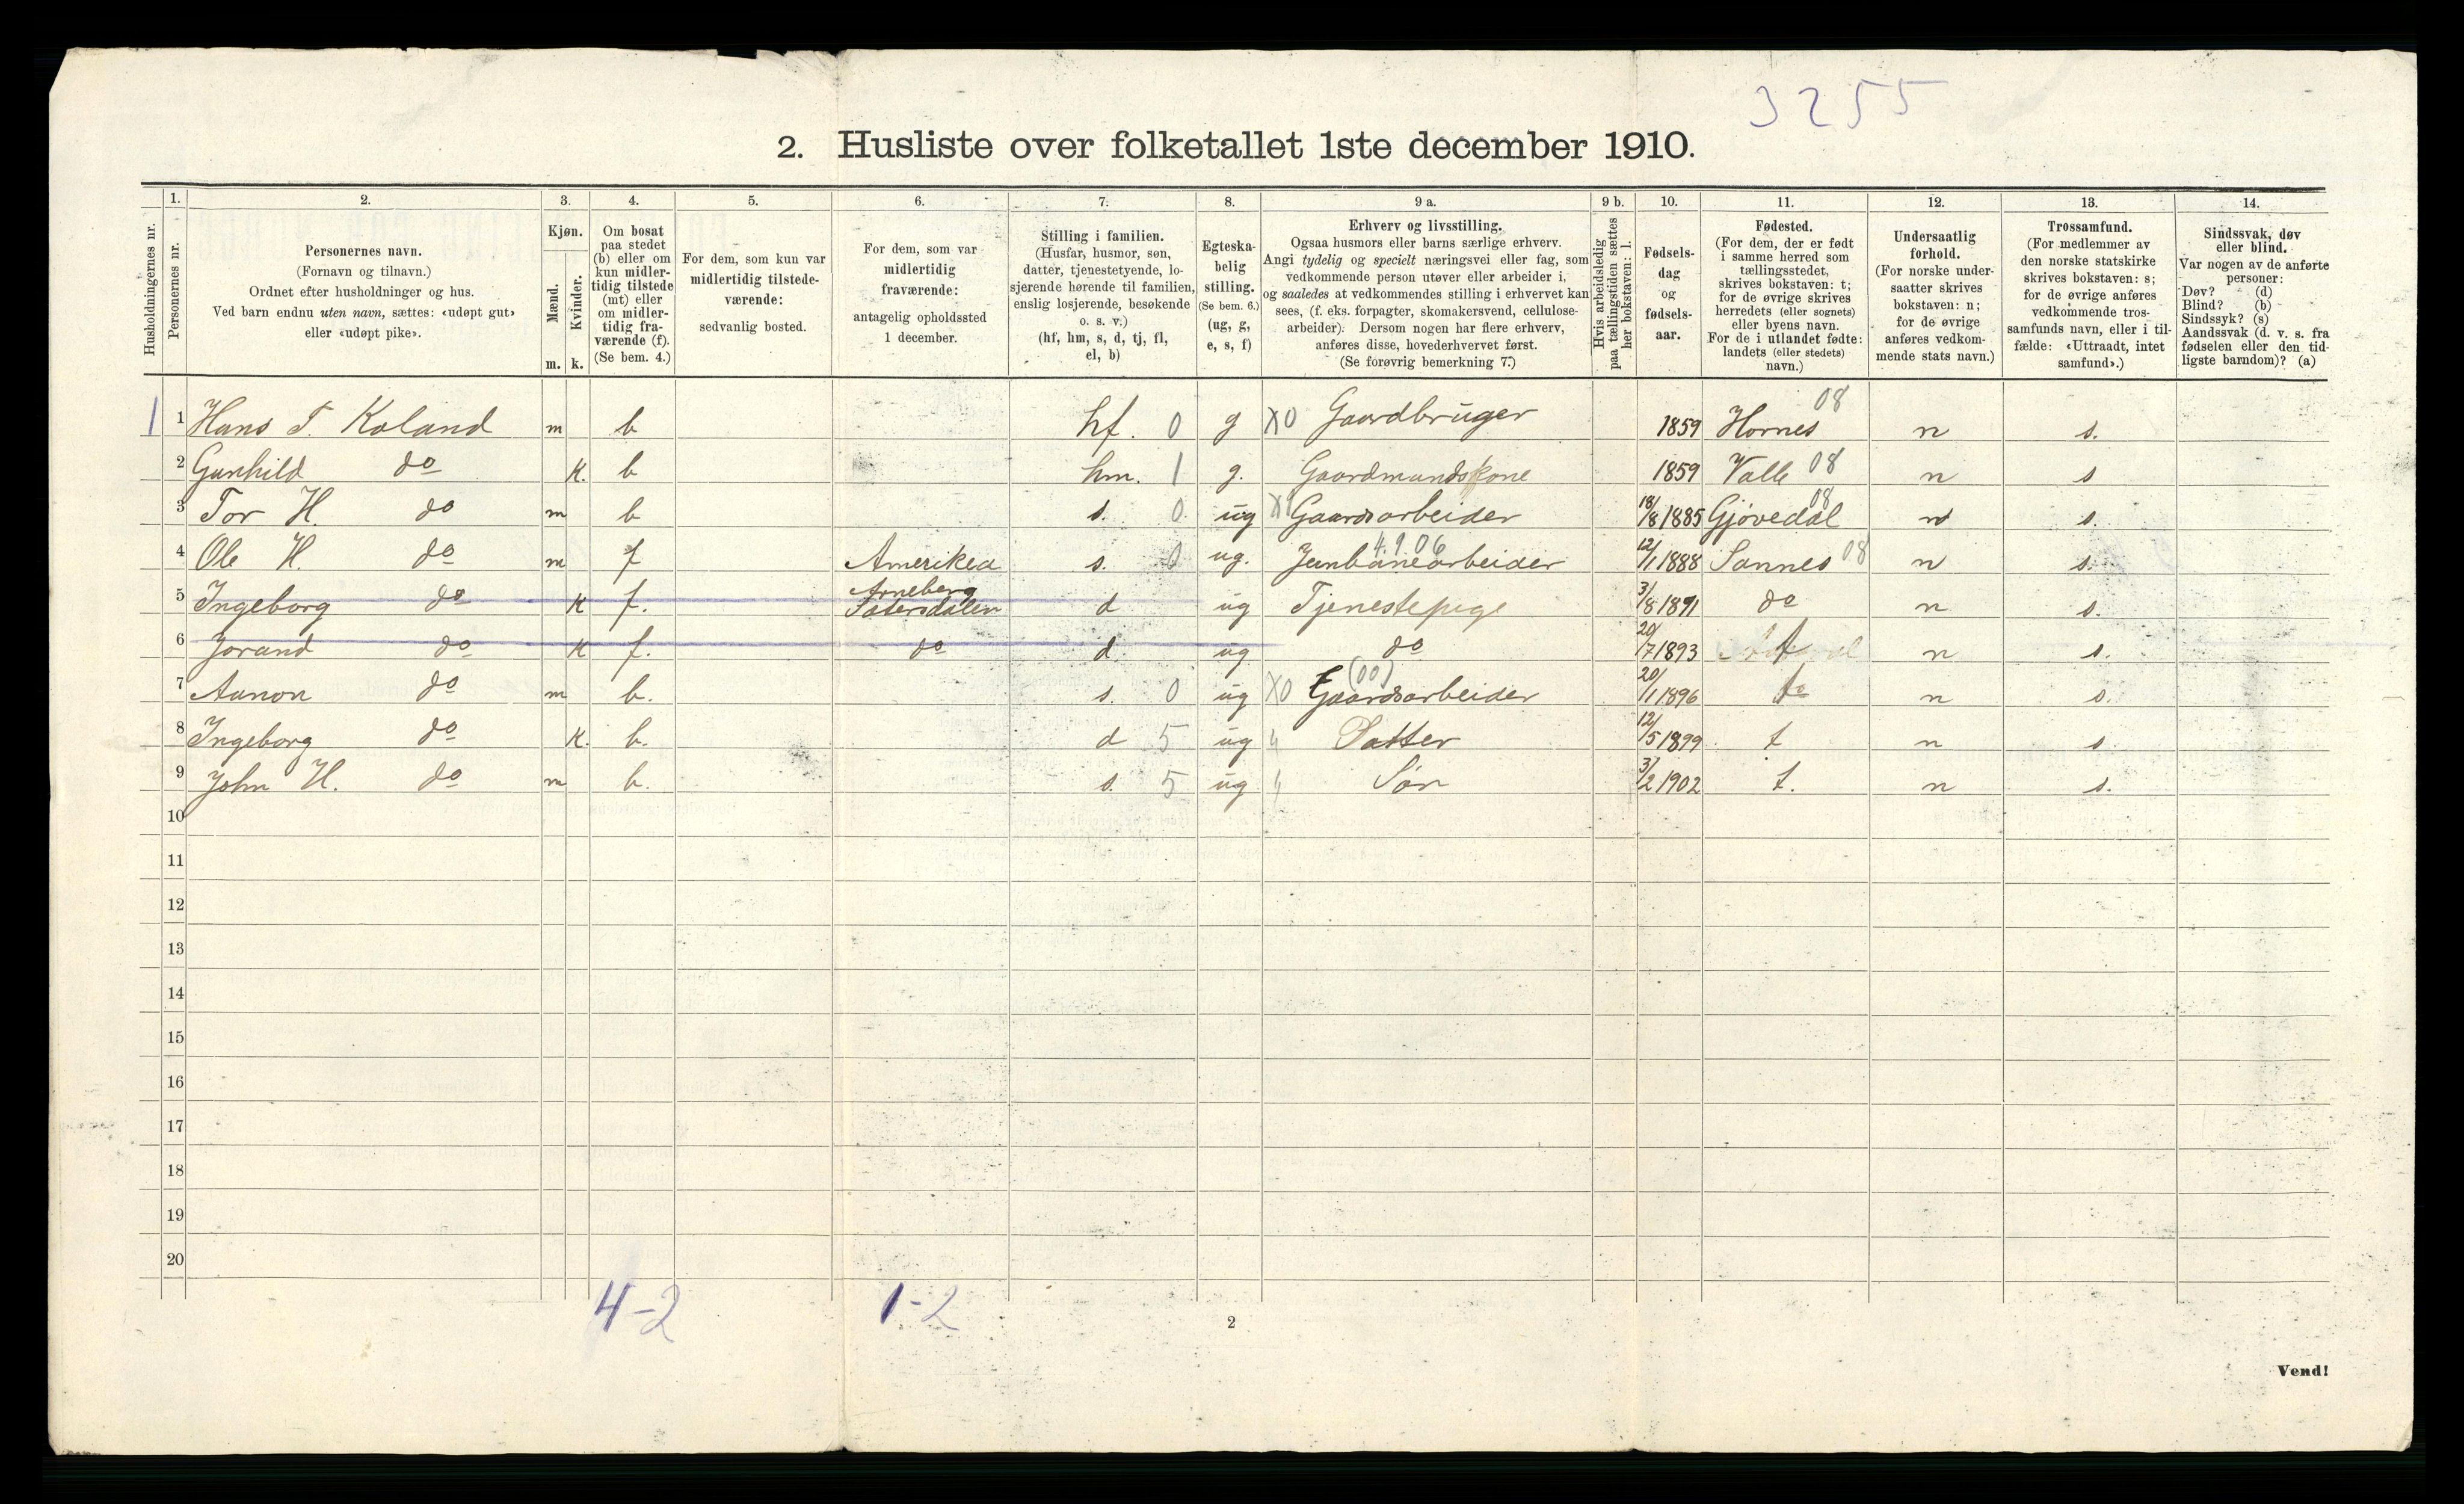 3255
2. Husliste over folketallet 1ste december 1910.
Husholdningernes nr.
1.
Personernes nr.
2.
Personernes navn.
(Fornavn og tilnavn.)
Ordnet efter husholdninger og hus.
Ved barn endnu uten navn, sættes: «udøpt gut»
eller «udøpt pike».
3.
Kjøn.
Mænd.
Kvinder.
m. k.
4.
Om bosat
paa stedet
(b) eller om
kun midler-
tidig tilstede
(mt) eller
om midler-
tidig fra-
værende (f).
(Se bem. 4.)
5.
For dem, som kun var
midlertidig tilstede-
værende:
sedvanlig bosted.
6.
For dem, som var
midlertidig
fraværende:
antagelig opholdssted
1 december.
7.
Stilling i familien.
(Husfar, husmor, søn,
datter, tjenestetyende, lo-
sjerende hørende til familien,
enslig losjerende, besøkende
o. s. v.)
(hf, hm, s, d, tj, fl,
el, b)
8.
Egteska-
belig
stilling.
(Se bem. 6.)
(ug, g,
e, s, f)
9 a.
Erhverv og livsstilling.
Ogsaa husmors eller barns særlige erhverv.
Angi tydelig og specielt næringsvei eller fag, som
vedkommende person utøver eller arbeider i,
og saaledes at vedkommendes stilling i erhvervet kan
sees, (f. eks. forpagter, skomakersvend, cellulose-
arbeider). Dersom nogen har flere erhverv,
anføres disse, hovederhvervet først.
(Se forøvrig bemerkning 7.)
9 b.
Hvis arbeidsledig
paa tællingstiden sættes
her bokstaven: l.
10.
Fødsels-
dag
og
fødsels-
aar.
11.
Fødested.
(For dem, der er født
i samme herred som
tællingsstedet,
skrives bokstaven: t;
for de øvrige skrives
herredets (eller sognets)
eller byens navn.
For de i utlandet fødte:
landets (eller stedets)
navn.)
12.
Undersaatlig
forhold.
(For norske under-
saatter skrives
bokstaven: n;
for de øvrige
anføres vedkom-
mende stats navn.)
13.
Trossamfund.
(For medlemmer av
den norske statskirke
skrives bokstaven: s;
for de øvrige anføres
vedkommende tros-
samfunds navn, eller i til-
fælde: «Uttraadt, intet
samfund».)
14.
Sindssvak, døv
eller blind.
Var nogen av de anførte
personer:
Døv? (d)
Blind? (b)
Sindssyk? (s)
Aandssvak (d. v. s. fra
fødselen eller den tid-
ligste barndom)? (a)
1 1 Hans T. Koland m b hf. 0 g X0 Gaardbruger 1859 Hornes 08 n s.
2 Gunhild do k. b hm. 1 g. Gaardmandskone 1859 Valle 08 n s
3 Tor H. do m b s. 0 ug X1 Gaardsarbeider 18/8 1885 Gjøvedal 08 n s.
4 Ole H. do m f Amerikea s. 0 ug. Jernbanearbeider 4.9 06 12/1 1888 Sannes 08 n s.
5 Ingeborg do k f. Arneberg Sætersdalen d ug Tjenestepige 3/8 1891 do n s.
6 Jorand do k f. do d ug do 20/7 1893 t n s.
7 Aanon do m b. s. 0 ug X0 F (00) Gaardsarbeider 20/1 1896 n s.
8 Ingeborg do k. b. d 5 ug " Datter 12/5 1899 t n s
9 John H. do m b. s. 5 ug " Søn 3/2 1902 t. n s.
10
11
12
13
14
15
16
17
18
19
20
4-2 1-2
2
Vend!